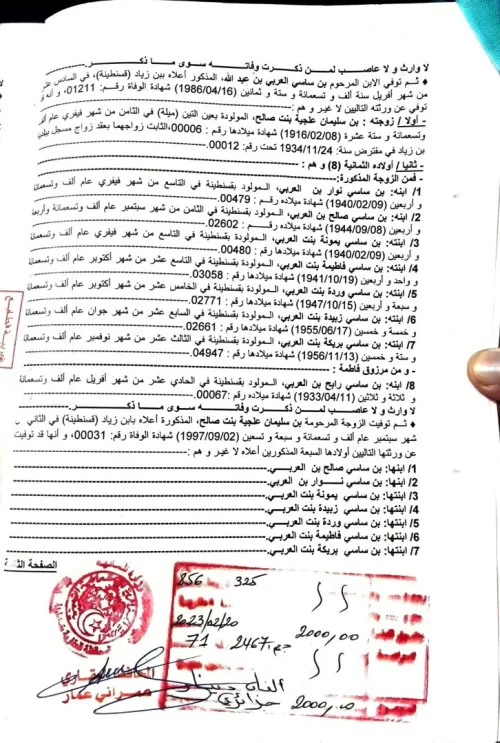 لا وارث و لا عاصب لمــن ذكــرت وفاتــه سـوى مــا ذكــر.
♦ ثــم توفي الابن المرحوم بن ساسي العربي بن عبد الله، المذكور أعلاه ببن زياد (قسنطينة)، في السادس عشر
من شهر أفريل سنة ألف و تسعمائة و ستة و ثمانين (1986/04/16) شهادة الوفاة رقــم: 01211، و أنه
توفي عن ورثته التاليين لا غيــر و هــم:
- أولا / زوجته : بن سليمان علجية بنت صالح، المولودة بعين التين (ميلة) في الثامن من شهر فيفري عام
وتسعمائة و ستة عشرة (1916/02/08) شهادة ميلادها رقم : 00006،الثابت زواجهما بعقد زواج مسجل
بن زياد في مفترض سنة: 1934/11/24 تحت رقم: 00012.
- ثانيا / أولاده الثمانية (8) و هم :
- فمن الزوجة المذكورة:
1/ ابنه: بن ساسي نوار بن العربي، المـولود بقسنطينة في التاسع من شهر فيفري عام ألف وتسعمائة
و أربعين (1940/02/09) شهادة ميلاده رقم : 00479.
2/ ابنه: بن ساسي صالح بن العربي، المـولود بقسنطينة في الثامن من شهر سبتمبر عام ألف وتسعمائة وأربعة
و أربعين (1944/09/08) شهادة ميلاده رقم : 02602.
3/ ابنته: بن ساسي يمونة بنت العربي، المـولودة بقسنطينة في التاسع من شهر فيفري عام ألف وتسعمائة
و أربعين (1940/02/09) شهادة ميلادها رقم : 00480.
4/ ابنته: بن ساسي فاطيمة بنت العربي، المـولودة بقسنطينة في التاسع عشر من شهر أكتوبر عام ألف وتسعمائة
و واحد و أربعين (1941/10/19) شهادة ميلادها رقم : 03058.
5/ ابنته: بن ساسي وردة بنت العربي، المـولودة بقسنطينة في الخامس عشر من شهر أكتوبر عام ألف وتسعمائة
و سبعة و أربعين (1947/10/15) شهادة ميلادها رقم : 02771.
6/ ابنته: بن ساسي زبيدة بنت العربي، المـولودة بقسنطينة في السابع عشر من شهر جوان عام ألف وتسعمائة
و خمسة و خمسين (1955/06/17) شهادة ميلادها رقم : 02661.
7/ ابنته: بن ساسي بريكة بنت العربي، المـولودة بقسنطينة في الثالث عشر من شهر نوفمبر عام ألف وتسعمائة
و ستة و خمسين (1956/11/13) شهادة ميلادها رقم : 04947.
- و من مرزوق فاطمة :
8/ ابنه: بن ساسي رابح بن العربي، المـولود بقسنطينة في الحادي عشر من شهر أفريل عام ألف وتسعمائة
و ثلاثة و ثلاثين (1933/04/11) شهادة ميلاده رقم :00067.
لا وارث و لا عاصب لمــن ذكــرت وفاتــه سـوى مــا ذكــر.
♦ ثــم توفيت الزوجة المرحومة بن سليمان علجية بنت صالح، المذكورة أعلاه بابن زياد (قسنطينة) في الثاني
شهر سبتمبر عام ألف و تسعمائة و سبعة و تسعين (1997/09/02) شهادة الوفاة رقم: 00031، و أنها قد توفيت
عن ورثتها التاليين أولادها السبعة المذكورين أعلاه لا غيـر و هم :
1/ ابنها: بن ساسي صالح بن العربـي.
2/ ابنها: بن ساسي نـوار بن العربي.
3/ ابنتها: بن ساسي يمونة بنت العربي.
4/ ابنتها: بن ساسي زبيدة بنت العربـي.
5/ ابنتها: بن ساسي وردة بنت العربـي.
6/ ابنتها: بن ساسي فاطيمة بنت العربـي.
7/ ابنتها: بن ساسي بريكة بنت العربـي.
الصفحة
856 325
2023/02/20
2000,00
71 2467
ألفان دينار
جزائري
2000,00
عمراني عمار